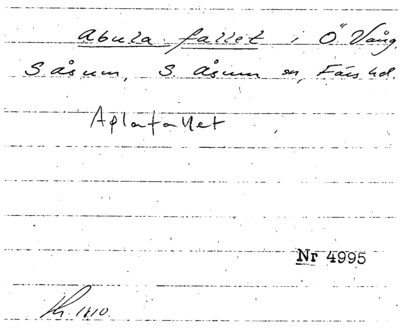 Abula fallet i Ö Vång,
S åsum, S Åsum sn, Färs hd.
Aplafallet
Nr 4995
1810.